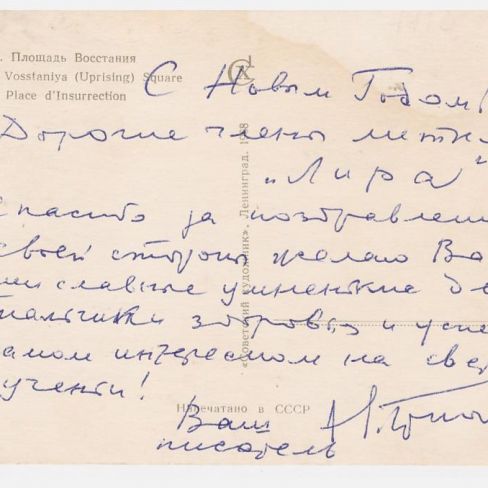 . Площадь Восстания
Vosstaniya (Uprising) Square
Place d'Insurrection
С Новым Годом!
Дорогие члены
„Лира"
спасибо за поздравлени
своей стороны желаю Ва
ми славные умненькие де
мальчики здоровья и успе
самом интересном на све
учении!
Ваш
писатель
«Советский художник». Ленинград. 1968
Напечатано в СССР